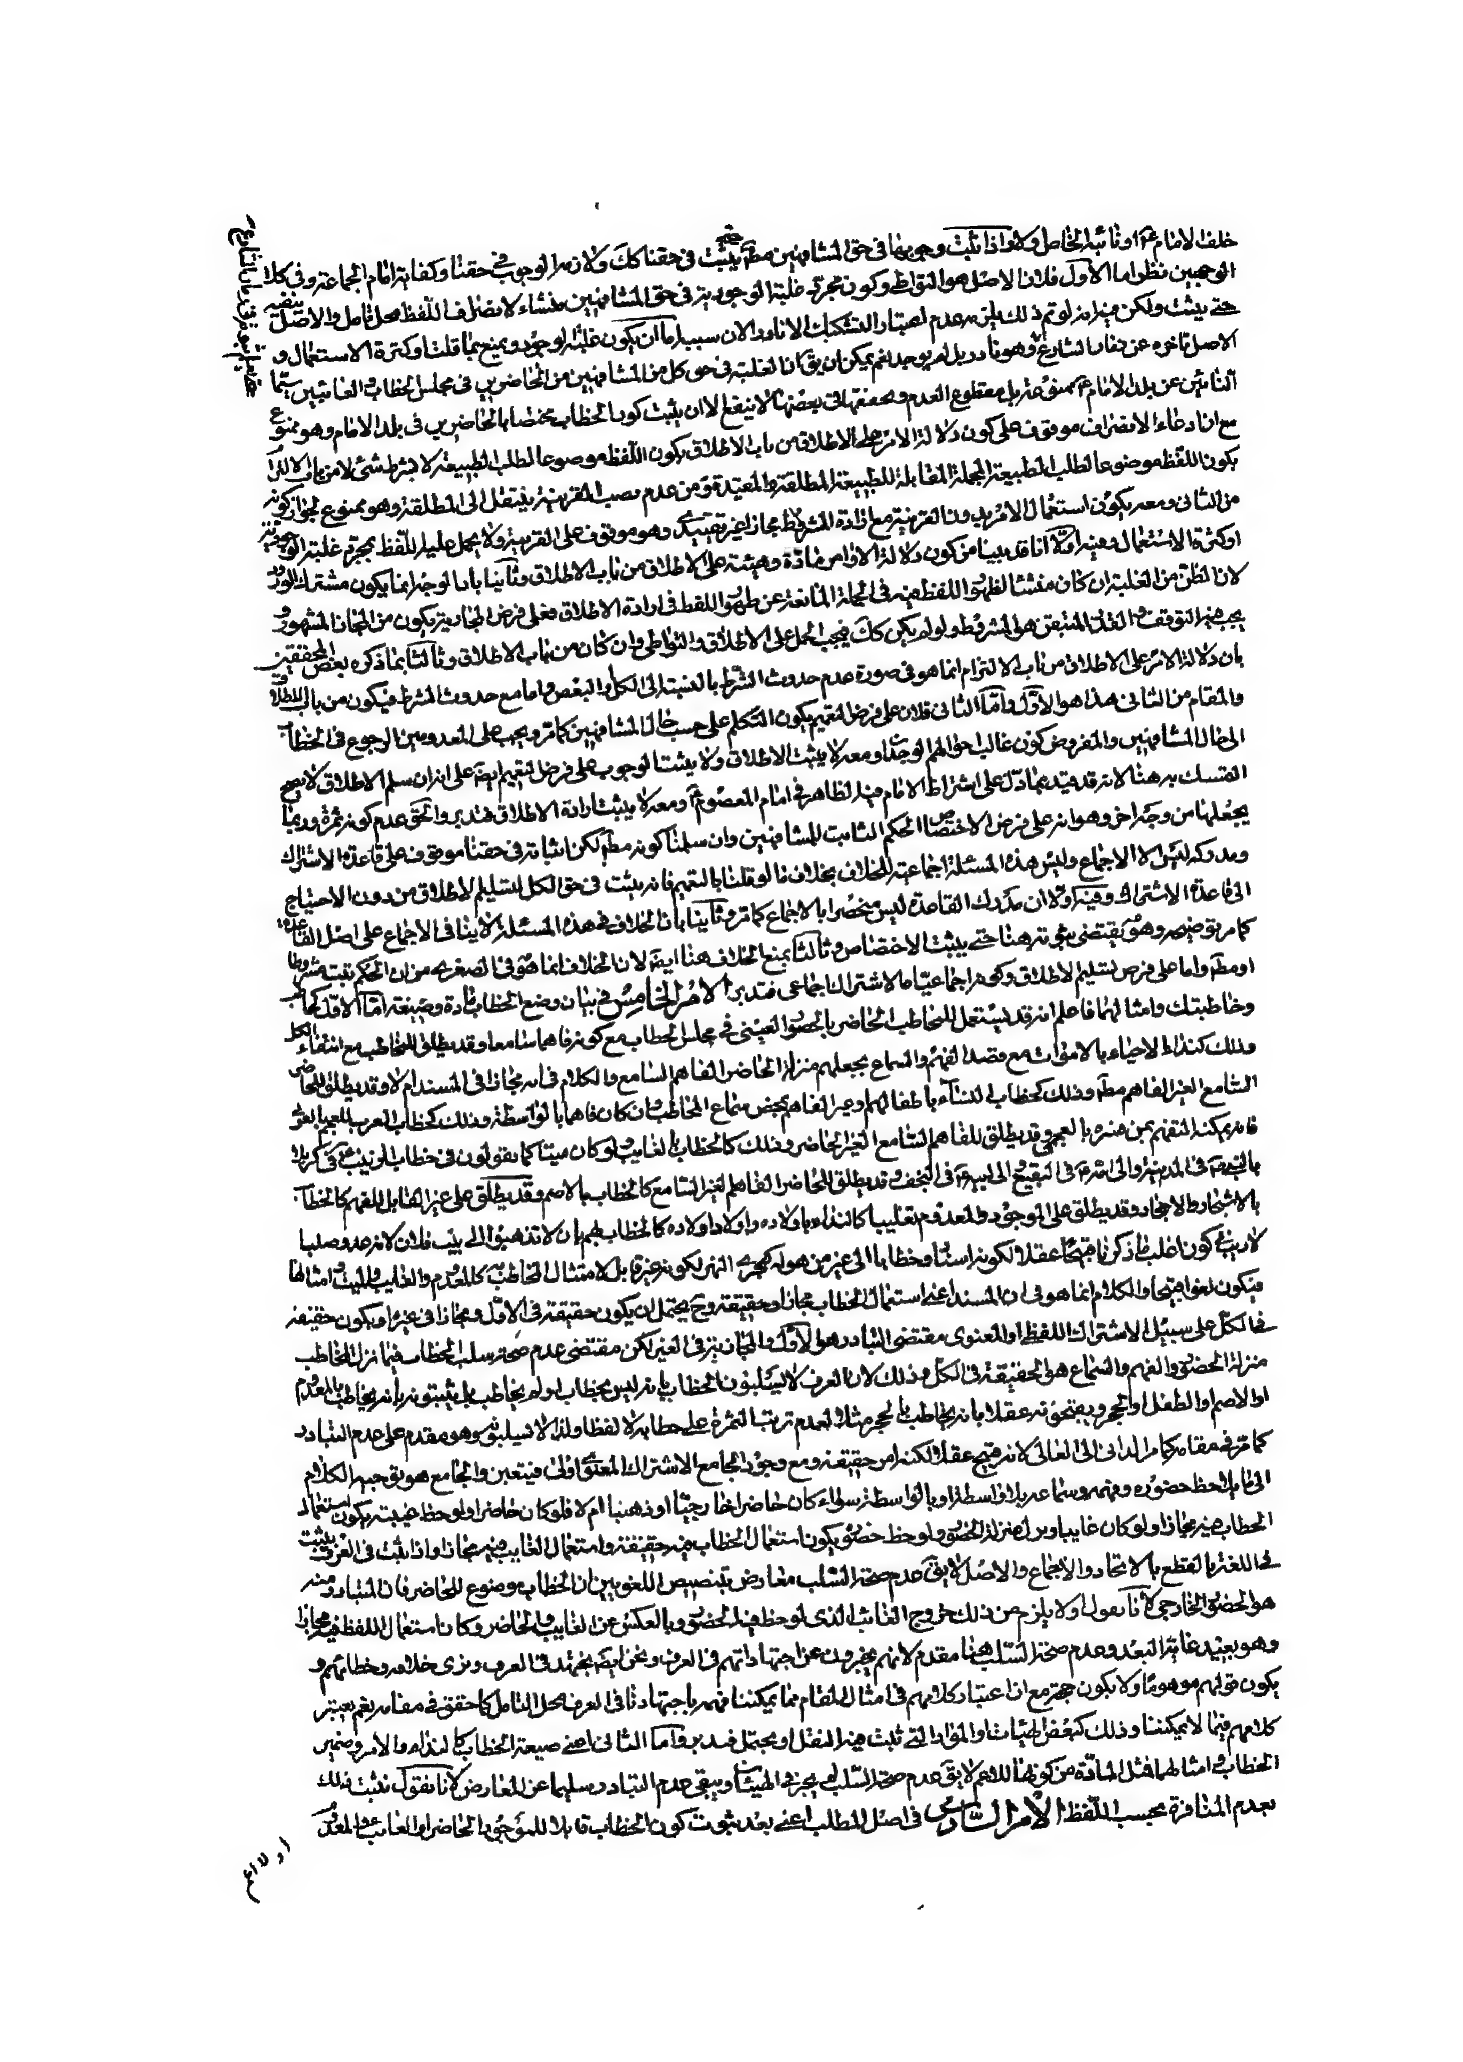 خلف الامام ع او نائبه الخاص ولا واذا ثبت وجوبها فى حق المشافهين مطلقا يثبت فى حقنا كك ولازمه الوجوب فى حقنا وكفاية امام الجماعة وفى كلا
الوجهين نظر اما الاول فلان الاصل هو التواطى وكون مجرد غلبة الوجودية فى حق المشافهين منشاء لانصراف اللفظ محل تامل والاصل ينفيه
حتى يثبت ولكن فيه انه لو تم ذلك يلزم عدم اعتبار التشكيك الا نادرا لان سببه اما ان يكون غلبة الوجود ويمنع بما قلت او كثرة الاستعمال و
الاصل تاخره عن زمان الشارع وهو نادر بل لم يوجد نعم يمكن ان يق كان الغلبة فى حق كل من المشافهين من الحاضرين فى مجلس الخطاب والغائبين سيما
النائين عن بلد الامام ع ممنوعة بل مقطوع العدم وتحققها فى بعضها لا ينفع الا ان يثبت كون الخطاب مختصا بالحاضرين فى بلد الامام وهو ممنوع
مع ان ادعاء الانصراف موقوف على كون دلالة الامر على الاطلاق من باب الاطلاق بكون اللفظ موضوعا لطلب الطبيعة لا بشرط شئ لا من باب الالتزام
بكون اللفظ موضوعا لطلب الطبيعة المجملة المقابلة للطبيعة المطلقة والمقيدة ومن عدم نصب القرينة ينتقل الى المطلقة وهو ممنوع لجواز كونه
من الثانى ومعه يكون استعمال الامر بدون القرينة مع ارادة المشروط مجازا غير تقييدى وهو موقوف على القرينة ولا يحمل عليه اللفظ بمجرد غلبة الوجودية
او كثرة الاستعمال وفيه اولا انا قد بينا من كون دلالة الاوامر مادة وهيئة على الاطلاق من باب الاطلاق وثانيا بان الوجه انما يكون مشترك الورود
لان الظن من الغلبة ان كان منشئا لظهور اللفظ فيه فى الجملة المانعة عن ظهور اللفظ فى ارادة الاطلاق فعلى فرض المجازية يكون من المجاز المشهور و
يجب فيه التوقف والقدر المتيقن هو المشروط ولو لم يكن كك فيجب الحمل على الاطلاق والتواطى وان كان من باب الاطلاق وثالثا بما ذكره بعض المحققين
بان دلالة الامر على الاطلاق من باب الالتزام انما هو فى صورة عدم حدوث الشرط بالنسبة الى الكل والبعض واما مع حدوث الشرط فيكون من باب الاطلاق
والمقام من الثانى هذا هو الاول واما الثانى فلان على فرض التعميم يكون التكلم على حسب حال المشافهين كما مر ويجب على المعدومين الرجوع فى الخطاب
الى حال المشافهين والمفروض كون غالب احوالهم الوجدان ومعه لا يثبت الاطلاق ولا يثبت الوجوب على فرض التعميم ايضا على انه ان سلم الاطلاق لا يصح
التمسك به هنا لانه قد قيد بما دل على اشتراط الامام فيه الظاهر فى امام المعصوم ع ومعه لا يثبت ارادة الاطلاق فتدبر والحق عدم كونه ثمرة وربما
يجعلها من وجه اخر وهو انه على فرض الاختصاص الحكم الثابت للمشافهين وان سلمنا كونه مطلقا لكن اثباته فى حقنا موقوف على قاعدة الاشتراك
ومدركه ليس الا الاجماع وليس هذه المسئلة اجماعية للخلاف بخلاف ما لو قلنا بالتعميم فانه يثبت فى حق الكل لتسليم الاطلاق من دون الاحتياج
الى قاعدة الاشتراك وفيه اولا ان مدرك القاعدة ليس منحصرا بالاجماع كما مر وثانيا بان الخلاف فى هذه المسئلة لا ينافى الاجماع على اصل القاعدة
كما مر توضيحه وهو يقتضى ثبوته هنا حتى يثبت الاختصاص وثالثا بمنع الخلاف هنا ايضا لان الخلاف انما هو فى الصغرى من ان الحكم ثبت مشروطا
او مطلقا واما على فرض تسليم الاطلاق وكونه اجماعيا فالاشتراك اجماعى فتدبر الامر الخامس فى بيان وضع الخطاب مادة وصيغة اما الاول كخاطب
وخاطبتك وامثالهما فاعلم انه قد يستعمل للمخاطب الحاضر بالحضور العينى فى مجلس الخطاب مع كونه فاهما سامعا وقد يطلق للمخاطب مع انتفاء الكل
وذلك كنداء الاحياء بالاموات مع قصد الفهم والسماع بجعلهم منزلة الحاضر الفاهم السامع والكلام فى انه مجاز فى المسند ام لا وقد يطلق للحاضر
السامع الغير الفاهم مطلقا وذلك كخطاب النساء باطفالهم وغير الفاهم بمحض سماع المخاطب وان كان فاهما بالواسطة وذلك كخطاب العرب للعجم العرفى
فانه يمكنه التفهم بمن عنده بالعجمى وقد يطلق للفاهم السامع الغير الحاضر وذلك كالخطاب بالغايب ولو كان ميتا كما يقولون فى خطاب الزينب ع فى كربلا
بالنبى ص فى المدينة والى امه ع فى البقيع والى ابيه ع فى النجف وقد يطلق للحاضر الفاهم الغير السامع كالخطاب بالاصم وقد يطلق على غير القابل للفهم كالخطاب
بالاشجار والاحجار وقد يطلق على الموجود والمعدوم تغليبا كالنداء باولاده واولاد اولاده كالخطاب لهم بان لا تذهبوا الى بيت فلان لانه عدو صلبا
لا ريب فى كون اغلب ما ذكرنا قبيحا عقلا لكونه اسنادا وخطابا الى غير من هو له كجرى النهر لكونه غير قابل لامتثال المخاطب به كالمعدوم والغايب والميت وامثالها
فيكون لغوا قبيحا والكلام انما هو فى ان المسند اعنى استعمال الخطاب مجاز او حقيقة وح يحتمل ان يكون حقيقة فى الاول ومجازا فى غيره او يكون حقيقة
فى الكل على سبيل الاشتراك اللفظى او المعنوى مقتضى التبادر هو الاول والمجازية فى الغير لكن مقتضى عدم صحة سلب الخطاب فيما نزل المخاطب
منزلة الحضور والفهم والسماع هو الحقيقة فى الكل وذلك لان العرف لا يسلبون الخطاب بانه ليس بخطاب او لم يخاطب بل يثبتونه بانه يخاطب بالمعدوم
او الاصم او الطفل او الحجر ويقبحونه عقلا بانه يخاطب بالحجر مثلا لعدم ترتب الثمرة على خطابه لا لفظا ولذا لا يسلبونه وهو مقدم على عدم التبادر
كما مر فى مقامه كامر الدانى الى العالى لانه قبيح عقلا ولكنه امر حقيقة ومع وجود الجامع الاشتراك المعنوى اولى فيتعين والجامع هو توجيه الكلام
الى ما يلاحظ حضوره وفهمه وسماعه بلا واسطة او بالواسطة سواء كان حاضرا خارجيا او ذهنيا ام لا فلو كان حاضرا ولوحظ غيبته يكون استعمال
الخطاب فيه مجازا ولو كان غايبا ونزل منزلة الحضور ولوحظ حضوره يكون استعمال الخطاب فيه حقيقة واستعمال الغايب فيه مجازا واذا ثبت فى العرف يثبت
فى اللغة بالقطع بالاتحاد والاجماع والاصل لا يق عدم صحة السلب معارض بتنصيص اللغويين ان الخطاب موضوع للحاضر فان المتبادر منه
هو الحضور الخارجى لانا نقول اولا يلزم من ذلك خروج الغائب الذى لوحظ فيه الحضور وبالعكس عن الغايب والحاضر وكان استعمال اللفظ فيه مجازا
وهو بعيد غاية البعد وعدم صحة السلب هنا مقدم لانهم يخبرون عن اجتهاداتهم فى العرف ونحن ايضا نجتهد فى العرف ونرى خلافه وخطائهم و
يكون قولهم موهوما ولا يكون حجة مع ان اعتبار كلامهم فى امثال المقام مما يمكننا فهمه باجتهادنا فى العرف محل التامل كما حقق فى مقامه نعم يعتبر
كلامهم فيما لا يمكننا وذلك كبعض الهيئات والمواد التى ثبت فيه النقل او يحتمل فتدبر واما الثانى اعنى صيغة الخطاب كالنداء والامر وضمير
الخطاب وامثالهما فمثل المادة من كونها للاعم لا يق عدم صحة السلب لم يجر فى الهيئات ويبقى عدم التبادر سليما عن المعارض لانا نقول نثبت ذلك
بعدم المنافرة بحسب اللفظ الامر السادس فى اصل المطلب اعنى بعد ثبوت كون الخطاب قابلا للموجود الحاضر او الغائب والمعدوم
او لا